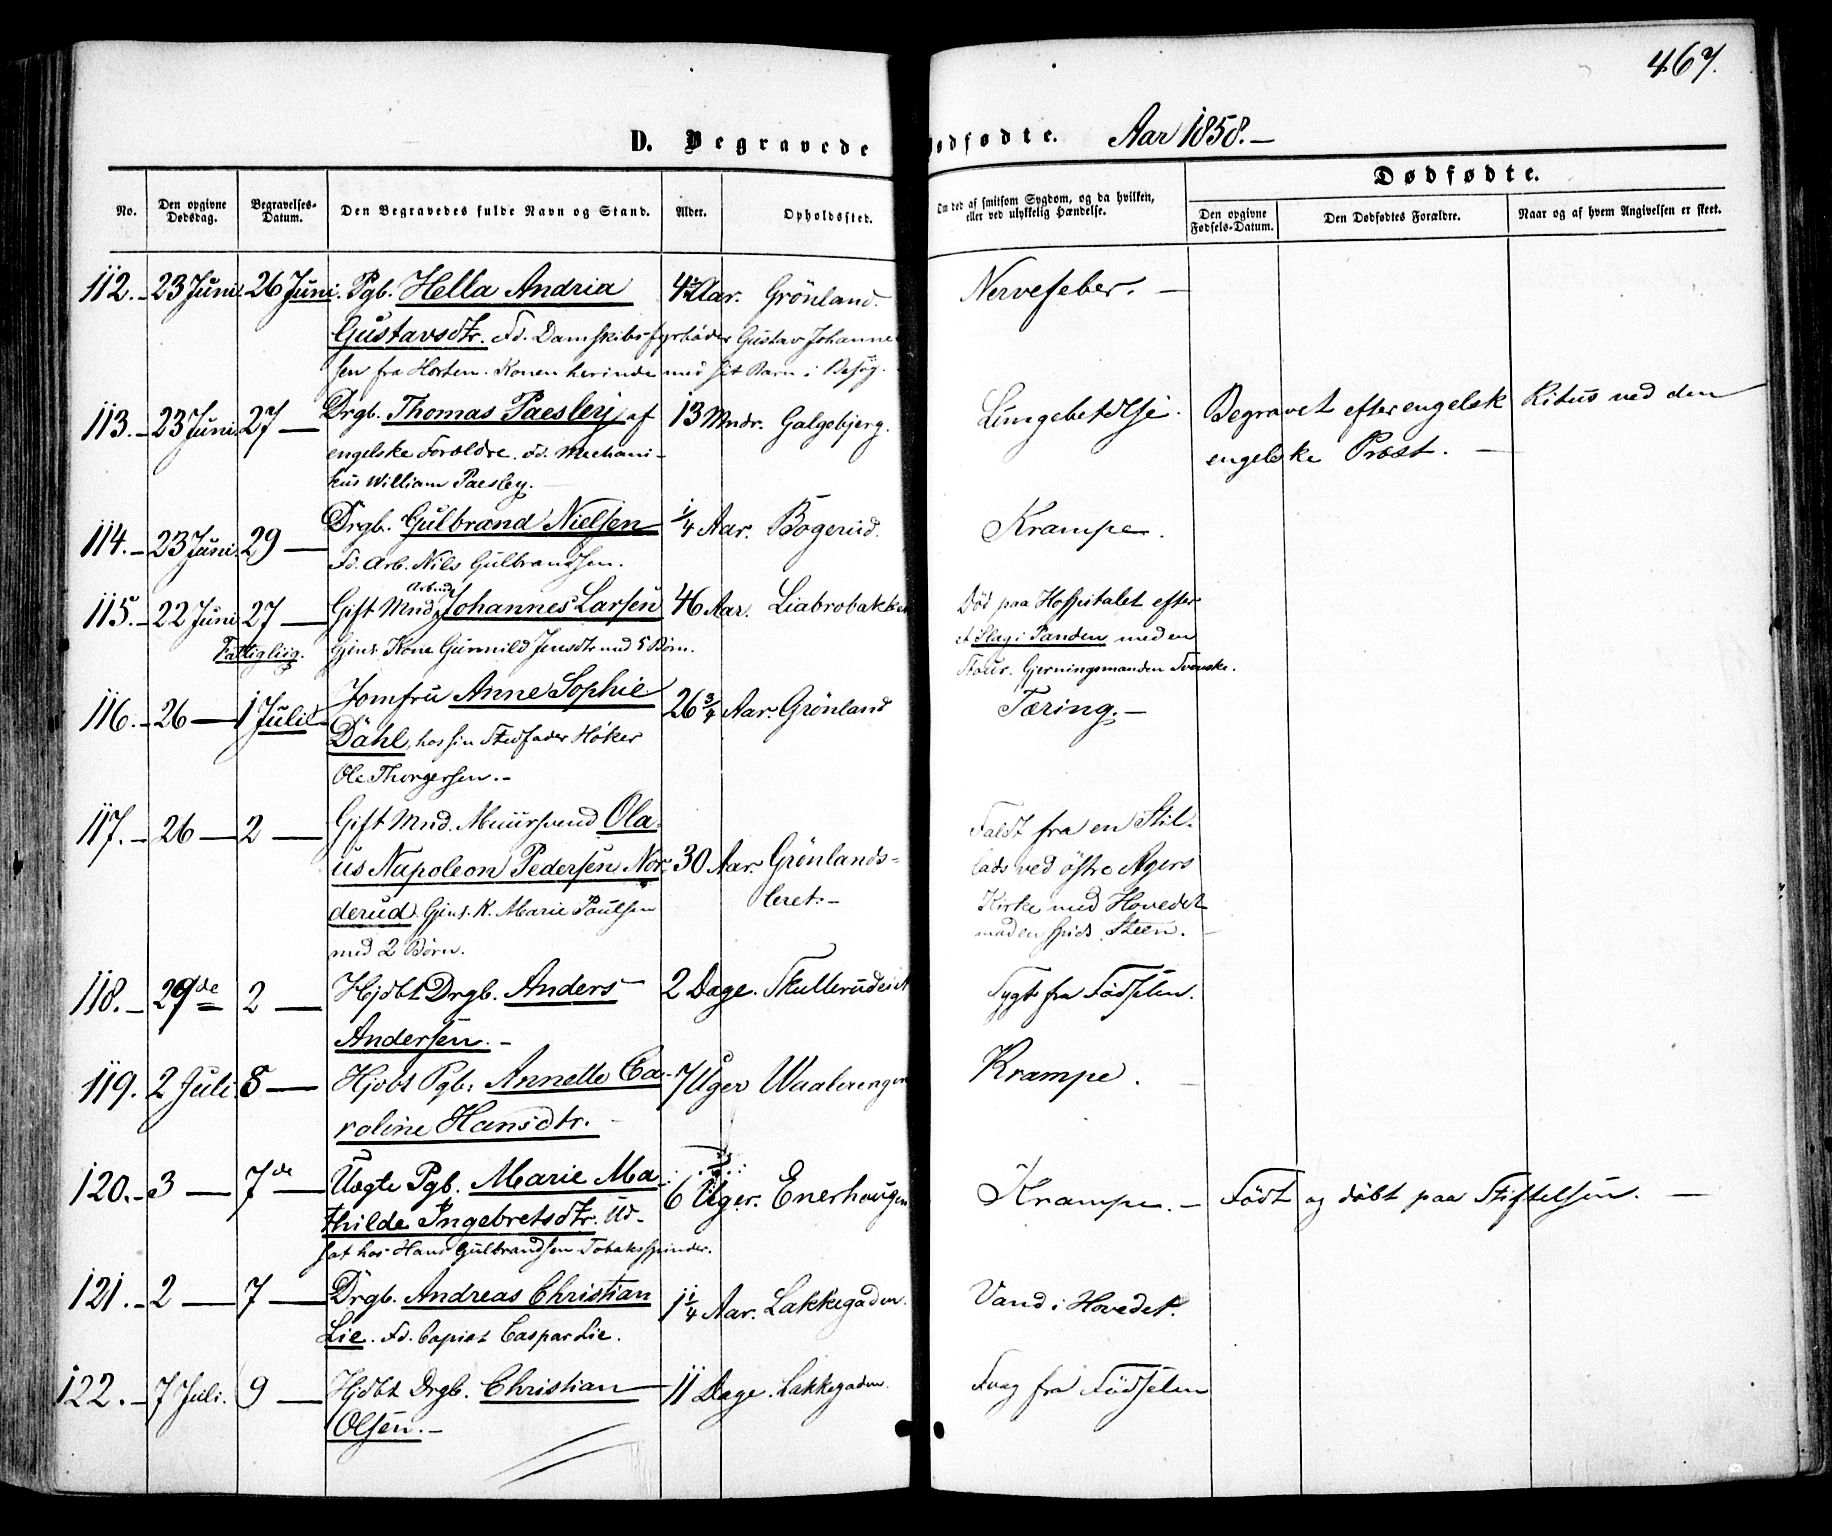 467.
D. Begravede
dødfødte. Aar 1858.–
No.
Den opgivne Dødsdag.
Begravelses-Datum.
Den Begravedes fulde Navn og Stand.
Alder.
Opholdssted.
Om død af smitsom Sygdom, og da hvilken, eller ved ulykkelig Hændelse.
Dødfødte.
Den opgivne Fødsels-Datum.
Den Dødfødtes Forældre.
Naar og af hvem Angivelsen er skeet.
112.– 23 Juni. 26 Juni. Pgb. Hella Andria Aar. Grönland. Nervefeber. –
Gustavsdtr. Fd. Damskibsfyrbøder Gustav Johanne
sen fra Horten. Konen herinde med sit Barn i Besøg.
113.– 23 Juni. 27 — Drgb. Thomas Paesley, af 13 Mndr. Galgebjerg. Lungebetælse. Begravet efter engelsk Ritus ved den
engelske Forældre. Fd. Mechani– engelske Præst. –
kus William Paesley. –
114.– 23 Juni. 29 — Drgb. Gulbrand Nielsen 1/4 Aar. Bøgerud. Krampe.
Fd. Arb. Nils Gulbrandsen.
115.– 22 Juni 27 — Gift Mnd Arbmd Johannes Larsen 46 Aar. Liabrobakken Død paa Hospitalet efter
Fattiglig. Gjens. Kone Gunnild Jensdtr med 5 Børn. et Slag i Panden med en
Staur. Gjerningsmanden Svenske.
116.– 26 — 1 Juli Jomfru Anne Sophie 26 3/4 Aar. Grönland Tæring. –
Dahl, hos sin Stedfader Høker
Ole Thorgersen. –
117.– 26 — 2 — Gift Mnd. Muursvend Ola- Faldt fra en Stil-
us Napoleon Pedersen Nor- 30 Aar. Grönlands- lads ved østre Agers
derud. Gjens. K. Marie Paulsen leret. – Kirke med Hovedet
med 2 Børn. mod en spids Steen. –
118.– 29de 2 — Hjdbt Drgb. Anders 2 Dage. Skullerudeiet Sygt fra Födselen.
Andersen. –
119. 2 Juli. 8 — Hjdbt Pgb. Annette Ca- 7 Uger Waalerengen Krampe. –
roline Hansdtr. –
120.– 3 — 7de Uægte Pgb. Marie Ma- 6 Uger. Enerhougen Krampe. – Födt og döbt paa Stiftelsen. –
thilde Ingebretsdtr. Ud-
sat hos Hans Gulbrandsen Tobaksspinder.
121.– 2 — 7 — Drgb. Andreas Christian 1 1/4 Aar. Lakkegaden. Vand i Hovedet.
Lie. Fd. Copist Caspar Lie.
122.– 7 Juli. 9 — Hjdbt Drgb. Christian 11 Dage. Lakkegaden. Svag fra Födselen
Olsen. –